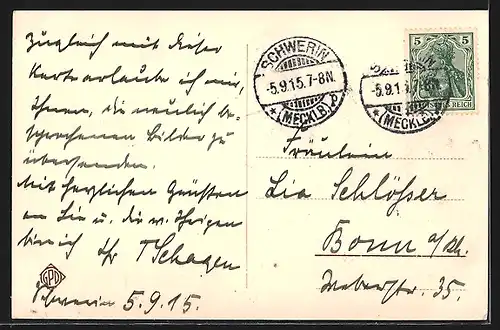 Zugleich mit dieser
Karte erlaube ich mir,
Ihnen, die neulich be-
sprochenen Bilder zu
übersenden.
Mit herzlichen Grüssen
an Sie u. die w. Ihrigen
bin ich Ihr T Schagen
Schwerin 5.9.15.
GPD
SCHWERIN
-5.9.15.7-8N.
*(MECKLB.)
-5.9.15.7-8N.
*(MECKLB.)
5 5
REICH
Fräulein
Lia Schlösser
Bonn a/Rh.
Weberstr. 35.